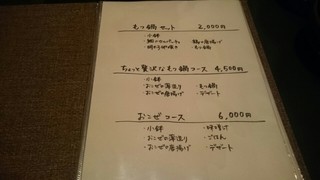 もつ鍋セット 2,000円
・小鉢
・もつ鍋
ちょっと贅沢なもつ鍋コース 4,500円
・小鉢
・おこぜの薄造り ・もつ鍋
・おこぜの唐揚げ ・デザート
おこぜコース 6,000円
・小鉢
・おこぜの薄造り ・ごはん
・おこぜの唐揚げ ・デザート